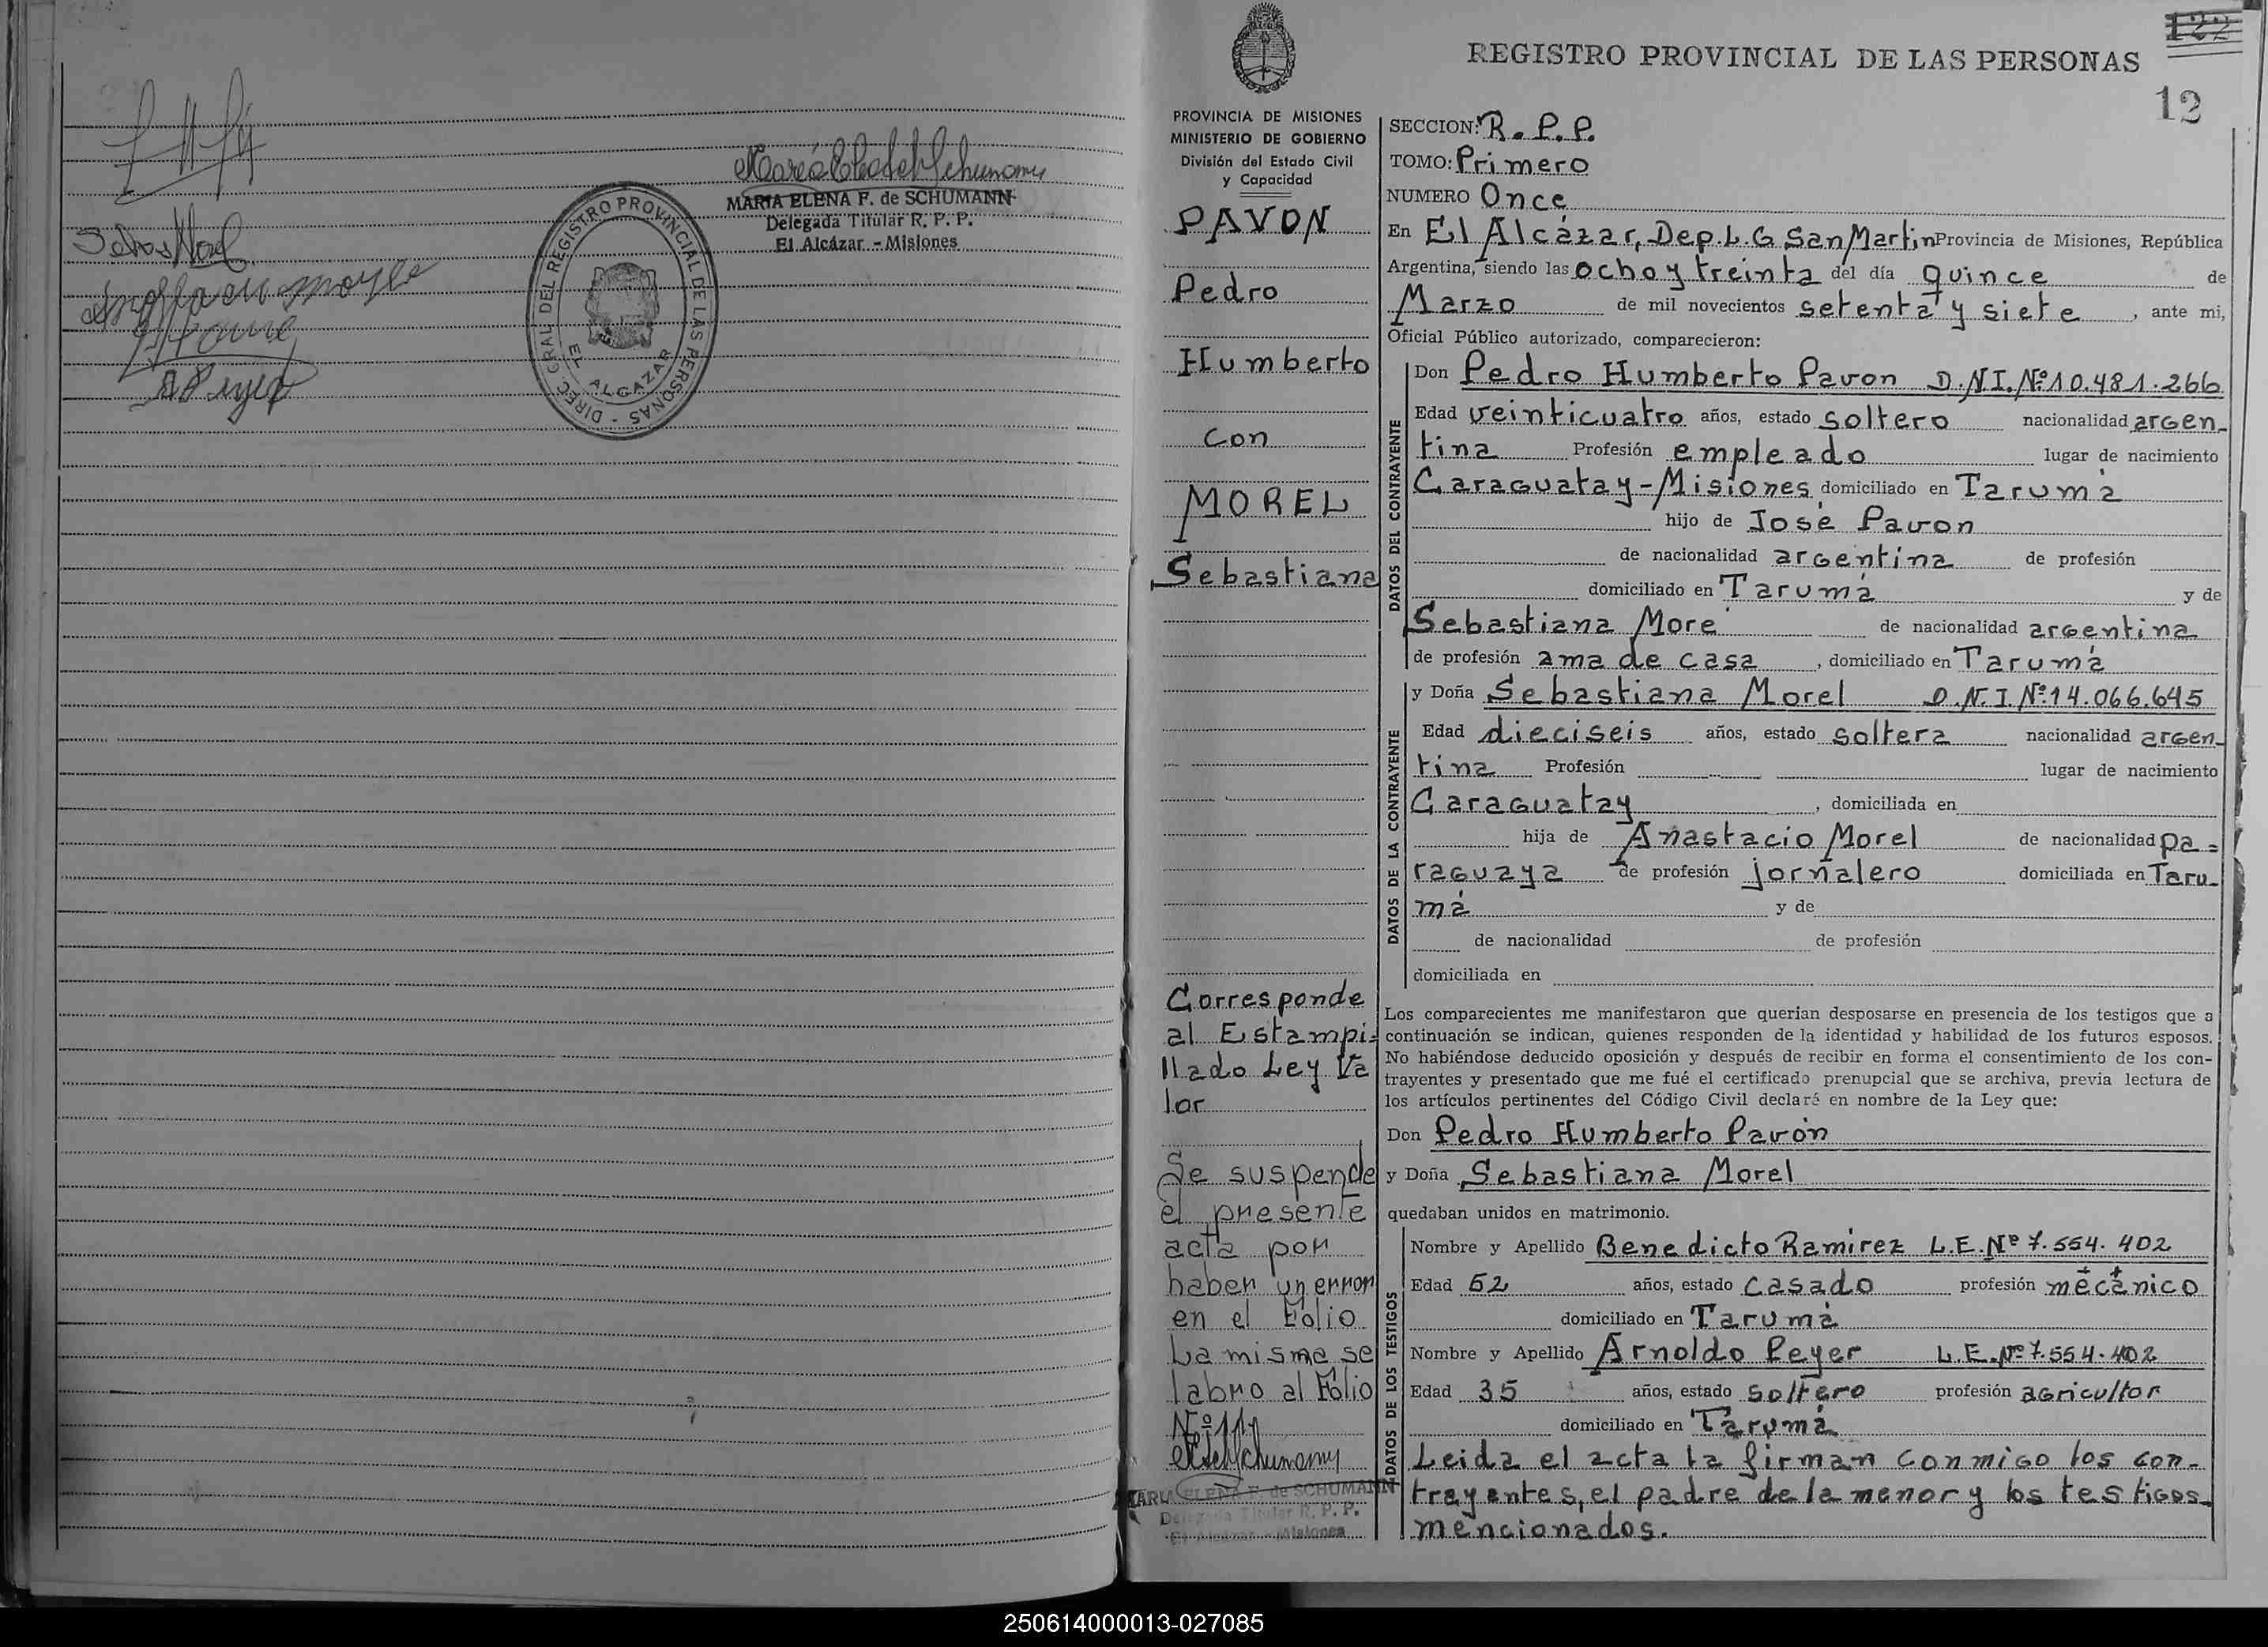 MARIA ELENA F. de SCHUMANN
Delegada Titular R. P. P.
El Alcázar - Misiones
DIREC. GRAL DEL REGISTRO PROVINCIAL DE LAS PERSONAS -
EL ALCAZAR
122
REGISTRO PROVINCIAL DE LAS PERSONAS
12
PROVINCIA DE MISIONES
MINISTERIO DE GOBIERNO
División del Estado Civil
y Capacidad
PAVON
Pedro
Humberto
con
MOREL
Sebastiana
Corresponde
al Estampi=
llado Ley Va
lor
Se suspende
el presente
acta por
haber un error
en el Folio
La misma se
labro al Folio
Nº 11
MARIA ELENA F. de SCHUMANN
Delegada Titular R. P. P.
El Alcázar - Misiones
SECCION: R. P. P.
TOMO: Primero
NUMERO Once
En El Alcázar, Dep. L. G San Martin Provincia de Misiones, República
Argentina, siendo las ocho y treinta del día quince de
Marzo de mil novecientos setenta y siete, ante mi,
Oficial Público autorizado, comparecieron:
DATOS DEL CONTRAYENTE
Don Pedro Humberto Pavon D.N.I. Nº 10.481.266
Edad veinticuatro años, estado soltero nacionalidad argen-
tina Profesión empleado lugar de nacimiento
Caraguatay-Misiones domiciliado en Tarumá
hijo de José Pavon
de nacionalidad argentina de profesión
domiciliado en Tarumá y de
Sebastiana More de nacionalidad argentina
de profesión ama de casa, domiciliado en Tarumá
DATOS DE LA CONTRAYENTE
y Doña Sebastiana Morel D.N.I. Nº 14.066.645
Edad dieciseis años, estado soltera nacionalidad argen-
tina Profesión lugar de nacimiento
Caraguatay, domiciliada en
hija de Anastacio Morel de nacionalidad pa=
raguaya de profesión jornalero domiciliada en Taru-
má y de
de nacionalidad de profesión
domiciliada en
Los comparecientes me manifestaron que querían desposarse en presencia de los testigos que a
continuación se indican, quienes responden de la identidad y habilidad de los futuros esposos.
No habiéndose deducido oposición y después de recibir en forma el consentimiento de los con-
trayentes y presentado que me fué el certificado prenupcial que se archiva, previa lectura de
los artículos pertinentes del Código Civil declaré en nombre de la Ley que:
Don Pedro Humberto Pavón
y Doña Sebastiana Morel
quedaban unidos en matrimonio.
DATOS DE LOS TESTIGOS
Nombre y Apellido Benedicto Ramirez L.E. Nº 7.554.402
Edad 52 años, estado casado profesión mécánico
domiciliado en Tarumá
Nombre y Apellido Arnoldo Peyer L.E. Nº 7.554.402
Edad 35 años, estado soltero profesión agricultor
domiciliado en Tarumá
Leida el acta la firman conmigo los con-
trayentes, el padre de la menor y los testigos
mencionados.
250614000013-027085